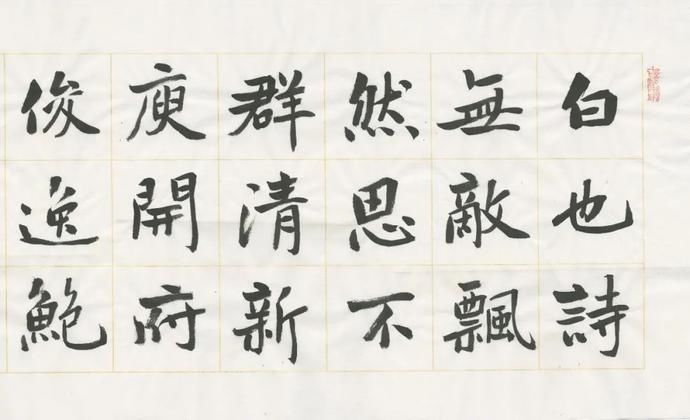 白也詩
無敵飄
然思不
群清新
庾開府
俊逸鮑